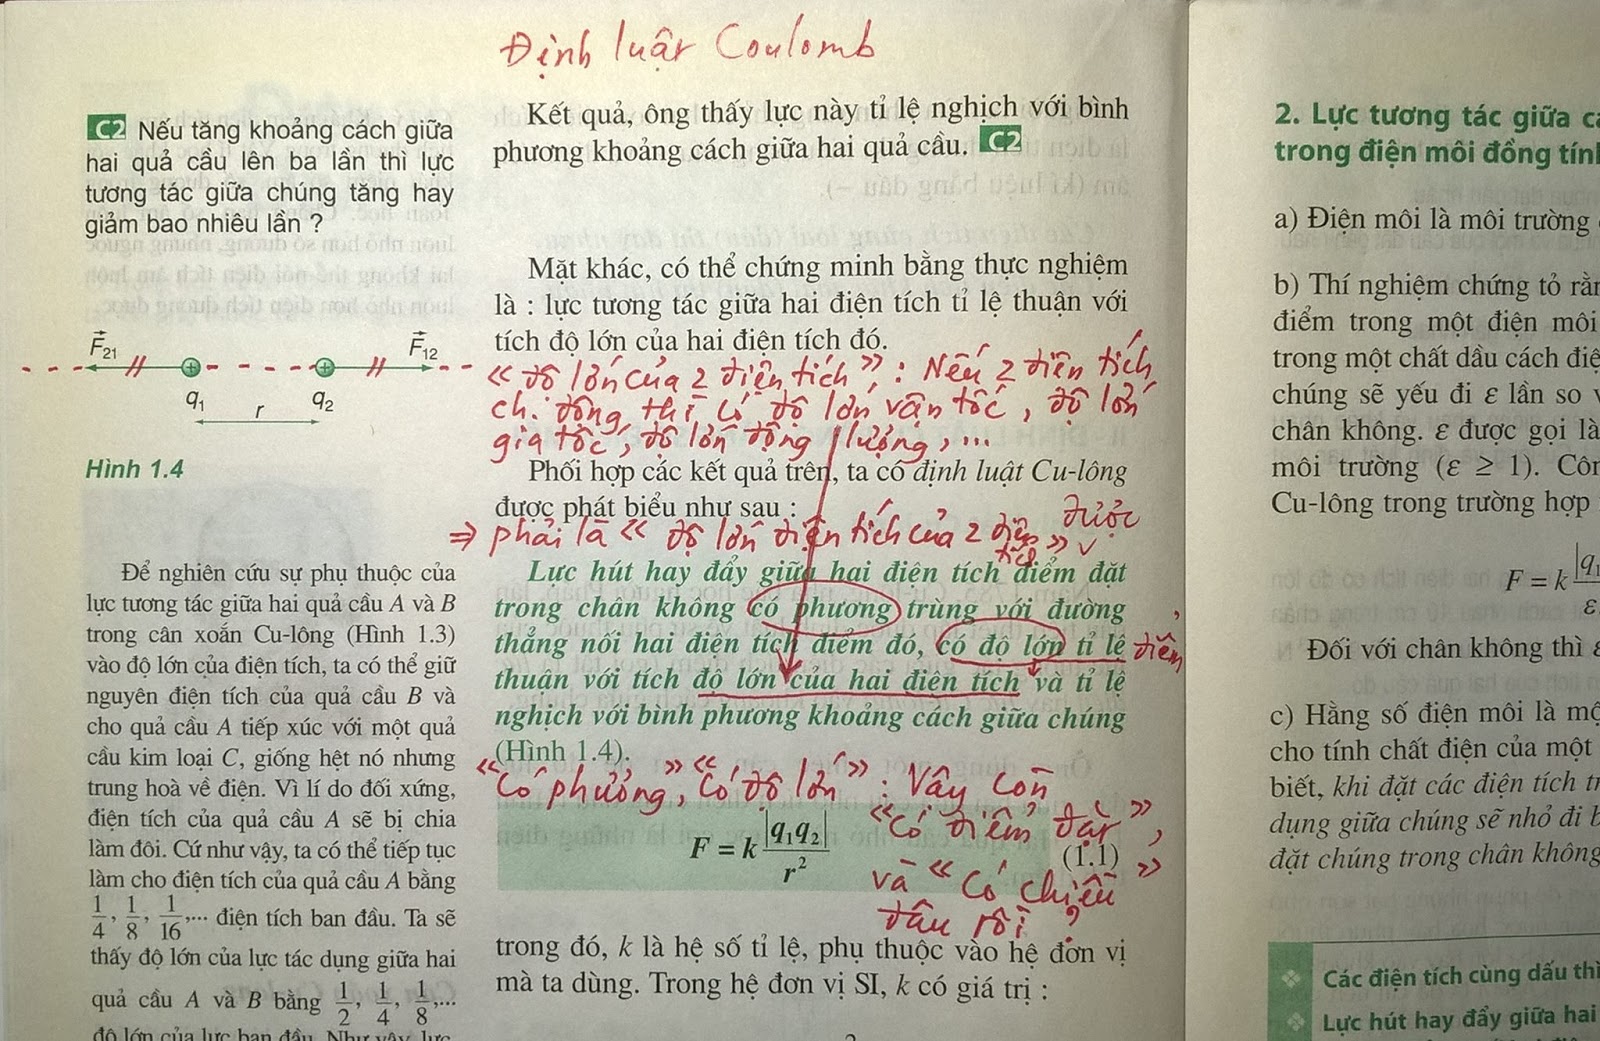 Định luật Coulomb
C2 Nếu tăng khoảng cách giữa
hai quả cầu lên ba lần thì lực
tương tác giữa chúng tăng hay
giảm bao nhiêu lần ?
F₂₁ F₁₂
q₁ r q₂
Hình 1.4
Để nghiên cứu sự phụ thuộc của
lực tương tác giữa hai quả cầu A và B
trong cân xoắn Cu-lông (Hình 1.3)
vào độ lớn của điện tích, ta có thể giữ
nguyên điện tích của quả cầu B và
cho quả cầu A tiếp xúc với một quả
cầu kim loại C, giống hệt nó nhưng
trung hoà về điện. Vì lí do đối xứng,
điện tích của quả cầu A sẽ bị chia
làm đôi. Cứ như vậy, ta có thể tiếp tục
làm cho điện tích của quả cầu A bằng
1/4, 1/8, 1/16,... điện tích ban đầu. Ta sẽ
thấy độ lớn của lực tác dụng giữa hai
quả cầu A và B bằng 1/2, 1/4, 1/8,...
độ lớn của lực ban đầu. Như vậy, lực
Kết quả, ông thấy lực này tỉ lệ nghịch với bình
phương khoảng cách giữa hai quả cầu. C2
Mặt khác, có thể chứng minh bằng thực nghiệm
là : lực tương tác giữa hai điện tích tỉ lệ thuận với
tích độ lớn của hai điện tích đó.
« độ lớn của 2 điện tích » : Nếu 2 điện tích
ch. động thì có độ lớn vận tốc, độ lớn
gia tốc, độ lớn động lượng, ...
Phối hợp các kết quả trên, ta có định luật Cu-lông
được phát biểu như sau :
⇒ phải là « độ lớn điện tích của 2 điện tích » được
Lực hút hay đẩy giữa hai điện tích điểm đặt
trong chân không có phương trùng với đường
thẳng nối hai điện tích điểm đó, có độ lớn tỉ lệ điểm
thuận với tích độ lớn của hai điện tích và tỉ lệ
nghịch với bình phương khoảng cách giữa chúng
(Hình 1.4).
« Có phương », « Có độ lớn » : Vậy còn
« có điểm đặt »,
F = k |q₁q₂| / r² (1.1)
và « Có chiều »
đâu rồi ?
trong đó, k là hệ số tỉ lệ, phụ thuộc vào hệ đơn vị
mà ta dùng. Trong hệ đơn vị SI, k có giá trị :
2. Lực tương tác giữa
trong điện môi đồng
a) Điện môi là môi trường
b) Thí nghiệm chứng tỏ
điểm trong một điện môi
trong một chất dầu cách
chúng sẽ yếu đi ε lần so
chân không. ε được gọi là
môi trường (ε ≥ 1).
Cu-lông trong trường hợp
F = k
ε
Đối với chân không thì
c) Hằng số điện môi là
cho tính chất điện của một
biết, khi đặt các điện tích
dụng giữa chúng sẽ nhỏ đi
đặt chúng trong chân không
Các điện tích cùng dấu thì
Lực hút hay đẩy giữa hai